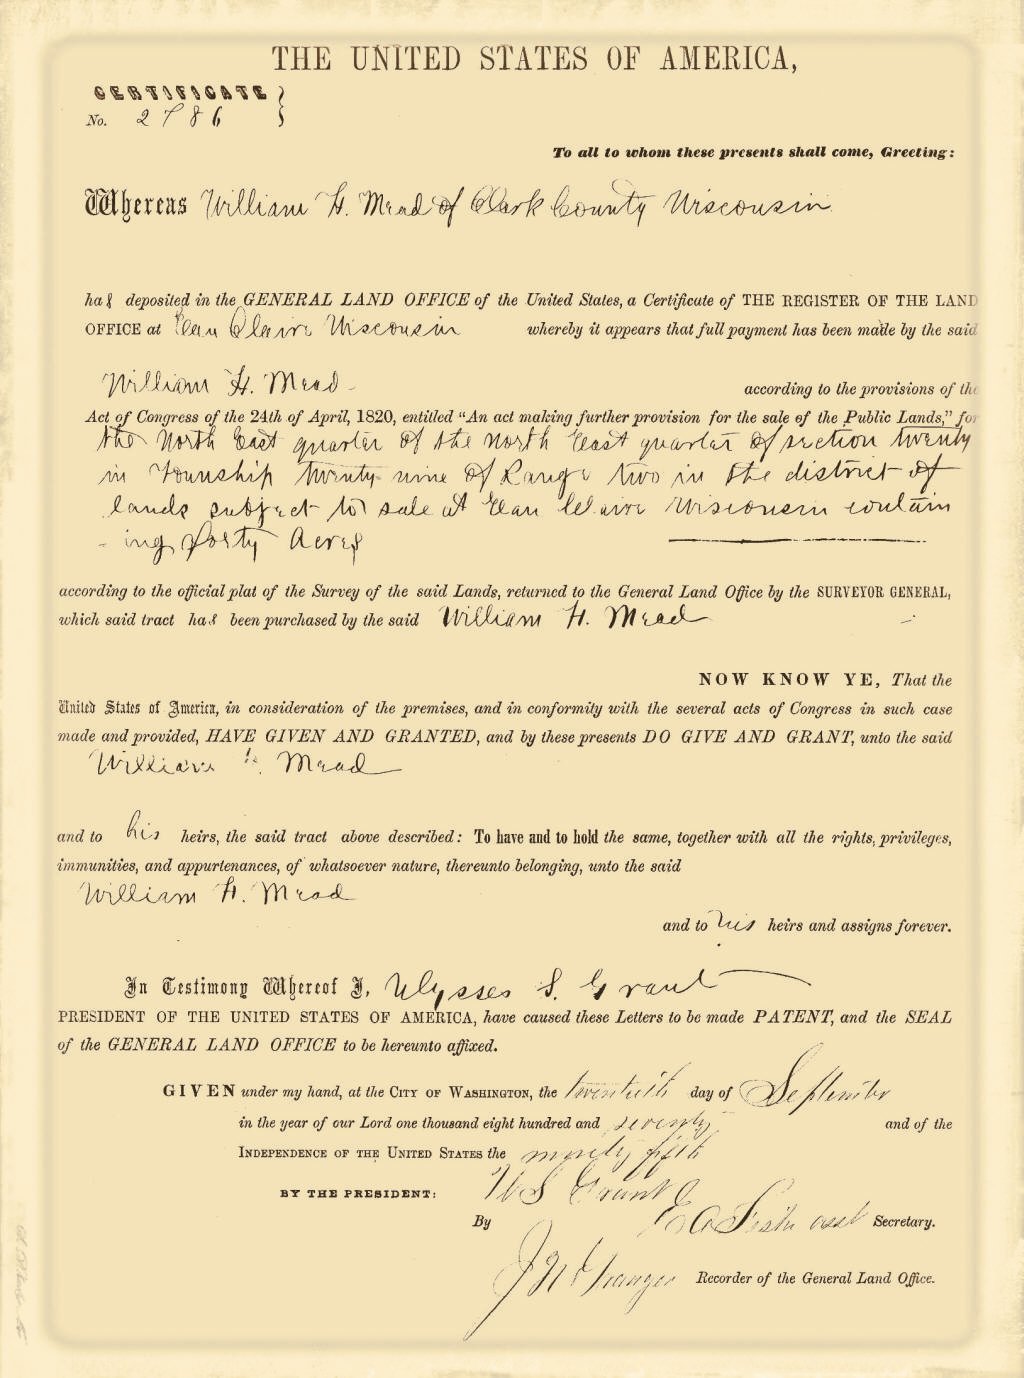 THE UNITED STATES OF AMERICA,
CERTIFICATE
No. 2786
To all to whom these presents shall come, Greeting:
Whereas William H. Mead of Clark County Wisconsin
has deposited in the GENERAL LAND OFFICE of the United States, a Certificate of THE REGISTER OF THE LAND
OFFICE at Eau Claire Wisconsin whereby it appears that full payment has been made by the said
William H. Mead according to the provisions of the
Act of Congress of the 24th of April, 1820, entitled "An act making further provision for the sale of the Public Lands," for
the North East quarter of the North East quarter of section twenty
in Township twenty nine of Range two in the district of
lands subject to sale at Eau Claire Wisconsin contain
-ing forty Acres
according to the official plat of the Survey of the said Lands, returned to the General Land Office by the SURVEYOR GENERAL,
which said tract has been purchased by the said William H. Mead
NOW KNOW YE, That the
United States of America, in consideration of the premises, and in conformity with the several acts of Congress in such case
made and provided, HAVE GIVEN AND GRANTED, and by these presents DO GIVE AND GRANT, unto the said
William H. Mead
and to his heirs, the said tract above described: To have and to hold the same, together with all the rights, privileges,
immunities, and appurtenances, of whatsoever nature, thereunto belonging, unto the said
William H. Mead
and to his heirs and assigns forever.
In Testimony Whereof I, Ulysses S. Grant
PRESIDENT OF THE UNITED STATES OF AMERICA, have caused these Letters to be made PATENT, and the SEAL
of the GENERAL LAND OFFICE to be hereunto affixed.
GIVEN under my hand, at the CITY OF WASHINGTON, the twentieth day of September
in the year of our Lord one thousand eight hundred and seventy and of the
INDEPENDENCE OF THE UNITED STATES the ninety fifth
BY THE PRESIDENT: U S Grant
By Secretary.
Recorder of the General Land Office.